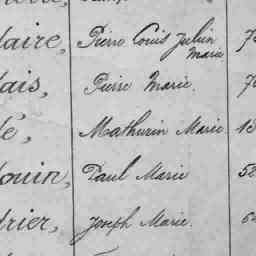 laire, Pierre Louis Julien Marie
lais, Pierre Marie. 7
lé, Mathurin Marie 13
ouin, Paul Marie 52
drier, Joseph Marie.